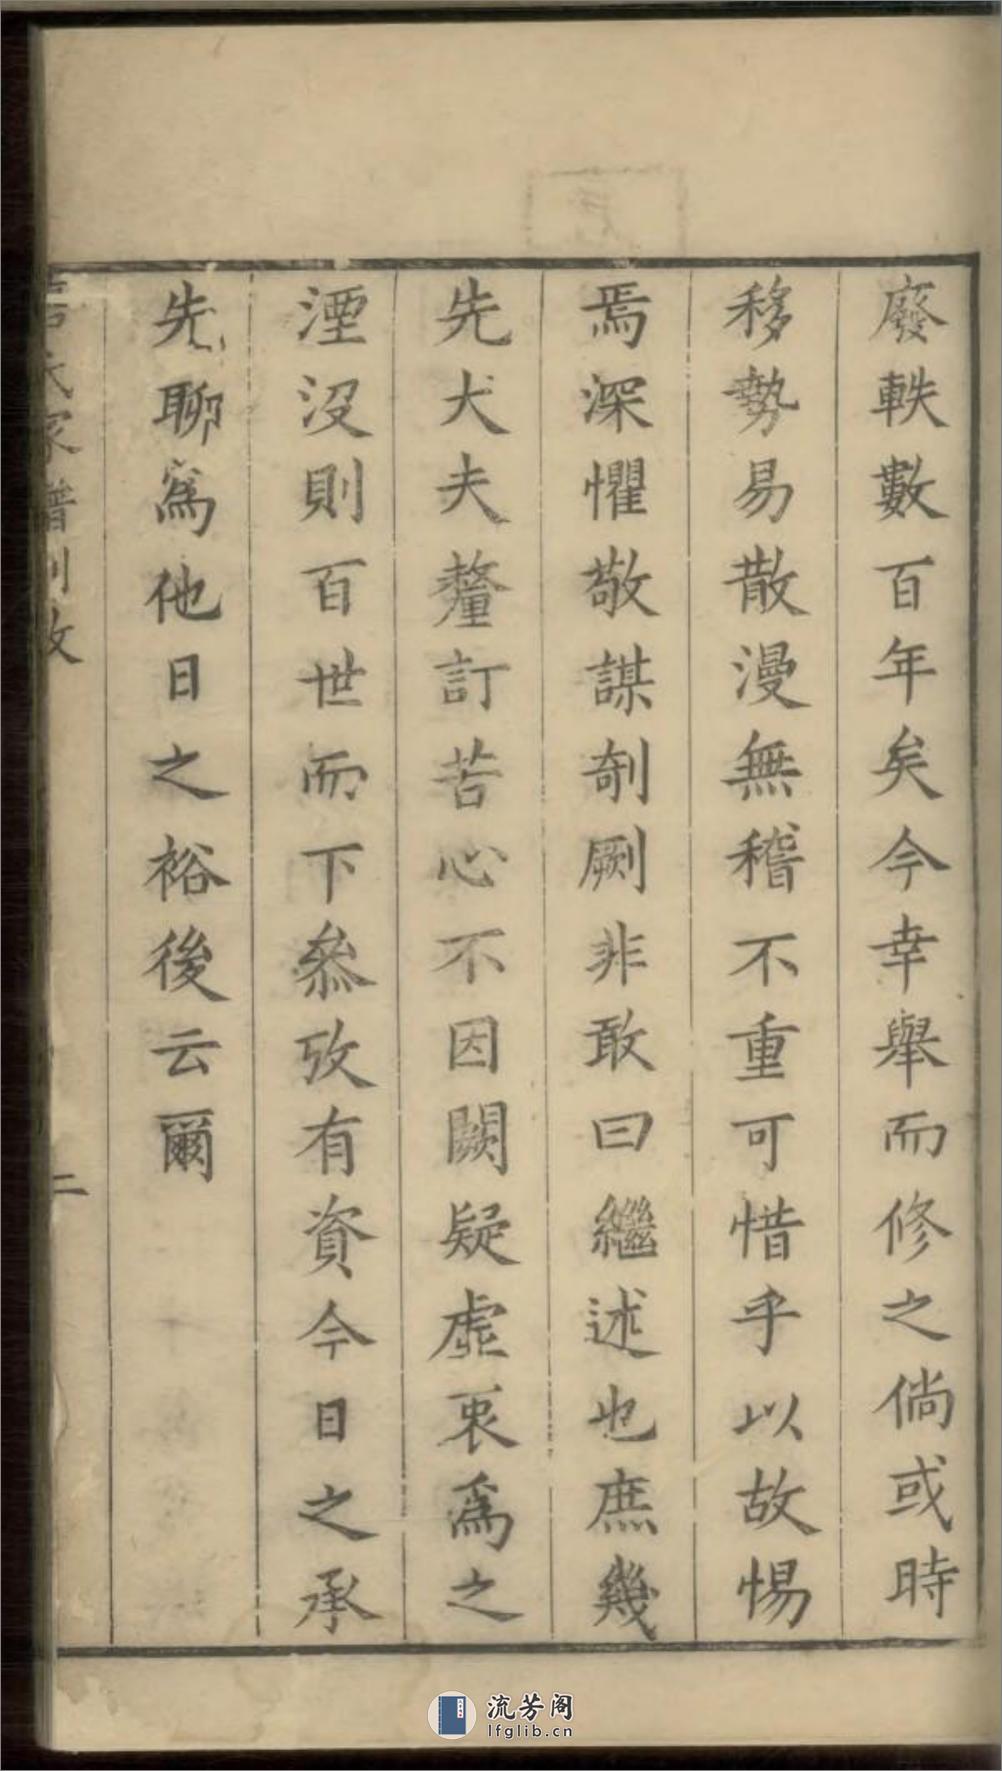 廢軼數百年矣今幸舉而修之倘或時
移勢易散漫無稽不重可惜乎以故惕
焉深懼敬謀剞劂非敢曰繼述也庶幾
先大夫釐訂苦心不因闕疑虛衷爲之
湮沒則百世而下叅攷有資今日之承
先聊爲他日之裕後云爾
氏家譜
二
流芳阁
lfglib.cn